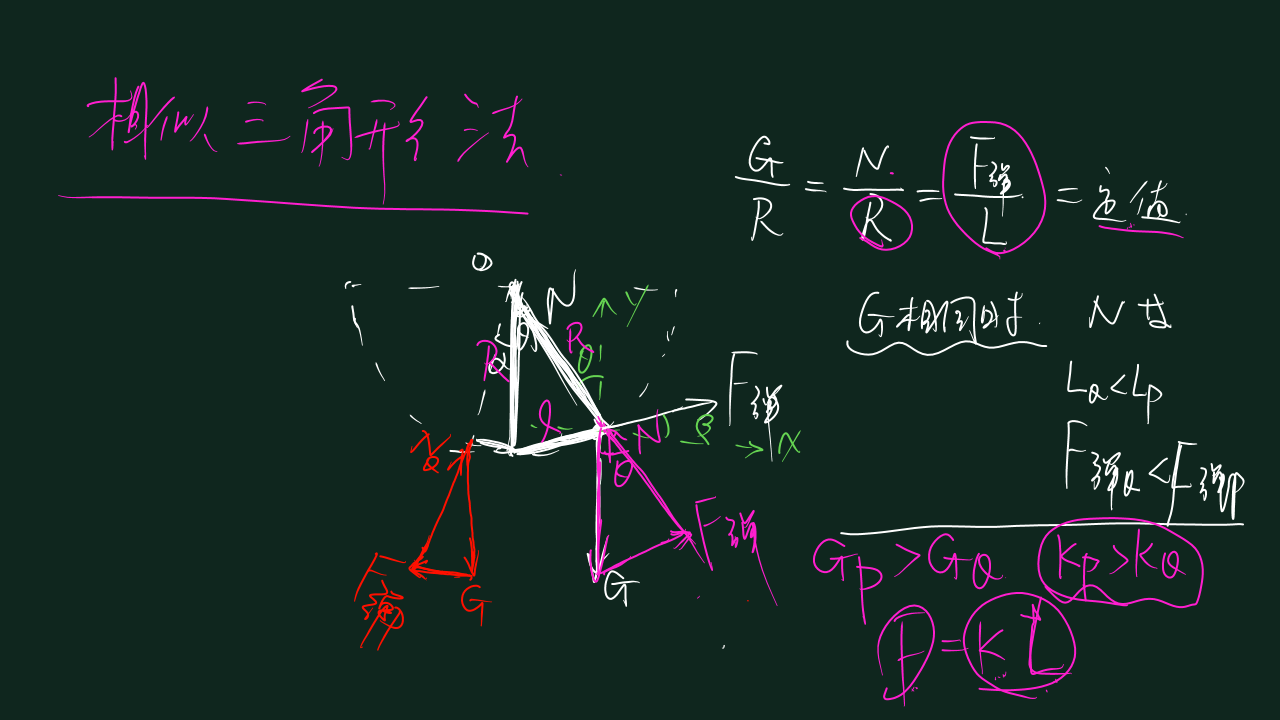 相似三角形法
G/R = N/R = F弹/L = 定值
G相同时. N
L_Q<L_P
F弹Q<F弹P
G_P>G_Q K_P>K_Q
F=KL
O
N
Y
R R θ
α θ
F弹
N_Q
N β
X
θ
F弹
F弹
G
G